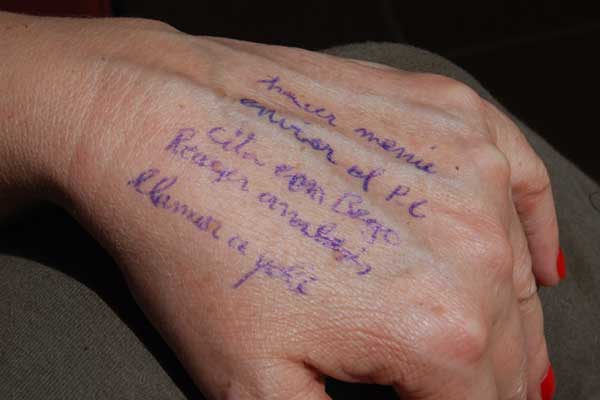 hacer menú
enviar el PC
Cita con Bego
Recoger analisis
llamar a